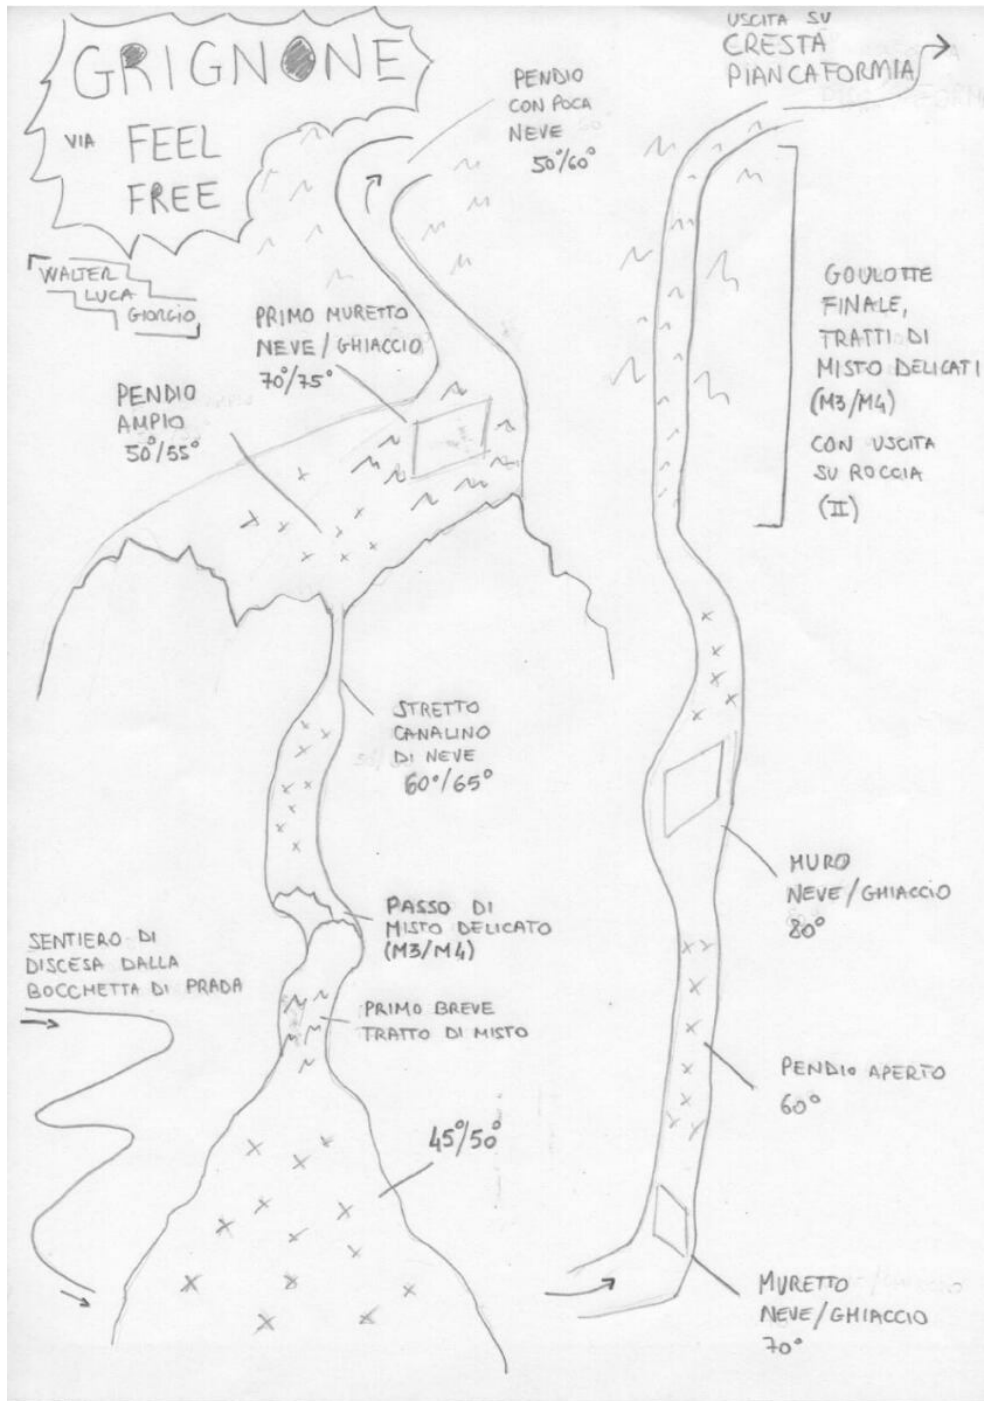 GRIGNONE
VIA FEEL
FREE
WALTER
LUCA
GIORGIO
PENDIO
CON POCA
NEVE
50°/60°
USCITA SU
CRESTA
PIANCAFORMIA
PRIMO MURETTO
NEVE/GHIACCIO
70°/75°
PENDIO
AMPIO
50°/55°
GOULOTTE
FINALE,
TRATTI DI
MISTO DELICATI
(M3/M4)
CON USCITA
SU ROCCIA
(II)
STRETTO
CANALINO
DI NEVE
60°/65°
MURO
NEVE/GHIACCIO
80°
PASSO DI
MISTO DELICATO
(M3/M4)
SENTIERO DI
DISCESA DALLA
BOCCHETTA DI PRADA
PRIMO BREVE
TRATTO DI MISTO
PENDIO APERTO
60°
45°/50°
MURETTO
NEVE/GHIACCIO
70°